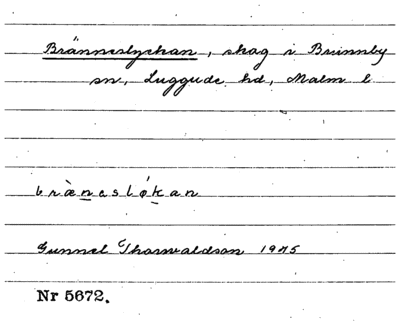 Bränneslyckan, skog i Brunnby
sn, Luggude hd, Malm. l.
bræ̀nesló̱kan
Gunnel Thorwaldson 1975
Nr 5672.